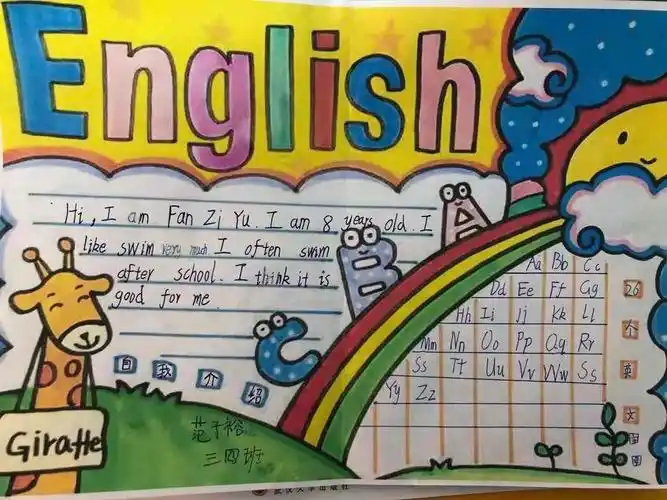 English
Hi, I am Fan Zi Yu. I am 8 years old. I
like swim very much I often swim
after school. I think it is
good for me.
A
B
C
自我介绍
Giraffe
范子裕
三四班
Aa Bb Cc
Dd Ee Ff Gg
Hh Ii Jj Kk Ll
Mm Nn Oo Pp Qq Rr
Ss Tt Uu Vv Ww Ss
Yy Zz
26
个
英
文
武汉大学出版社